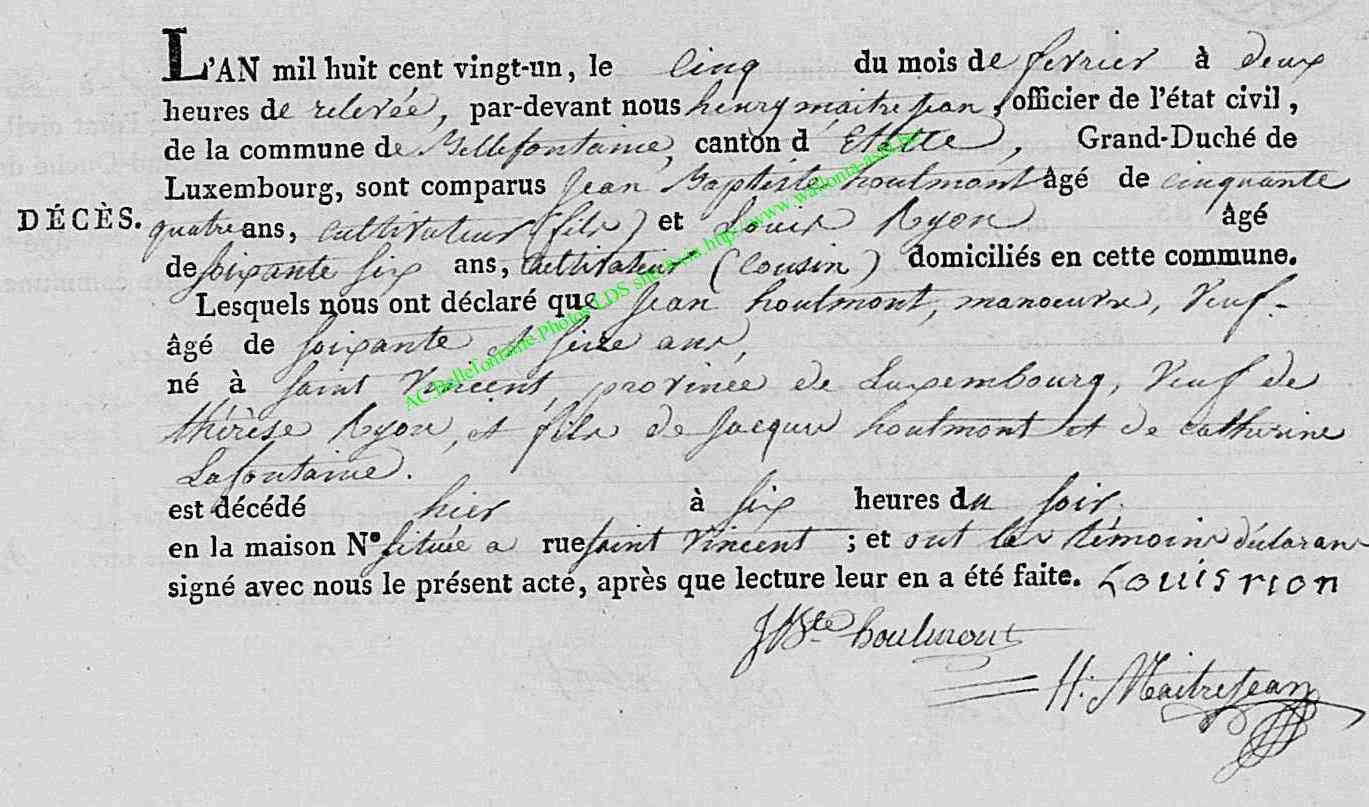 L'AN mil huit cent vingt-un, le cinq du mois de fevrier à deux
heures de relevée, par-devant nous henry maitrejean, officier de l'état civil,
de la commune de Bellefontaine, canton d'Etalle, Grand-Duché de
Luxembourg, sont comparus Jean Baptiste houlmont âgé de cinquante
DÉCÈS. quatre ans, cultivateur (fils) et Louis Ryon âgé
de soixante six ans, cultivateur (cousin) domiciliés en cette commune.
Lesquels nous ont déclaré que Jean houlmont, manoeuvre, Veuf-
âgé de soixante et seize ans,
né à Saint Vincent, province de Luxembourg, Veuf de
thérèse Ryon, et fils de Jacque houlmont et de catherine
Lafontaine.
est décédé hier à six heures du soir.
en la maison N° située a rue saint Vincent ; et ont les témoins déclarans
signé avec nous le présent acte, après que lecture leur en a été faite. Louis rion
JBte houlmont
H: Maitrejean
AC Bellefontaine Photos LDS sur le site http://www.wallonia-asbl.be